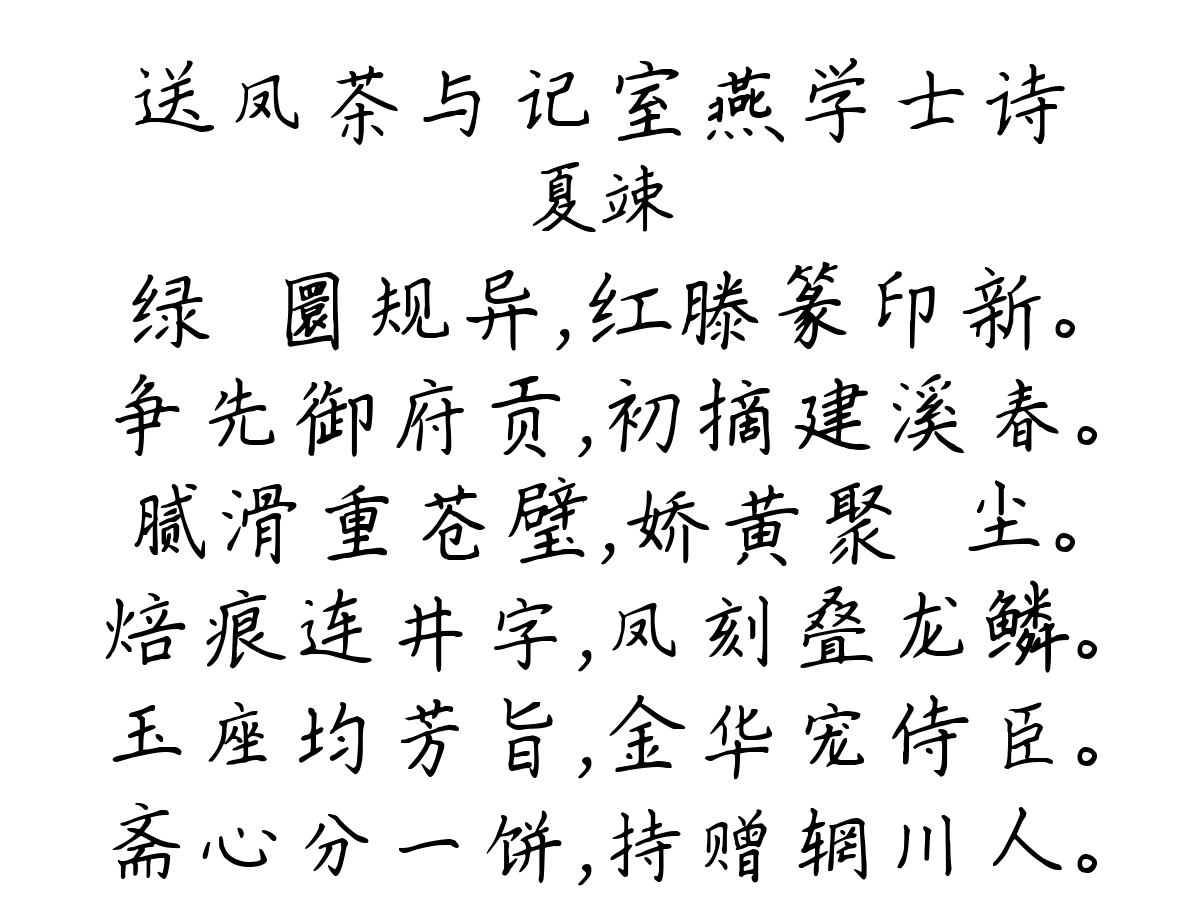 送凤茶与记室燕学士诗
夏竦
绿 圜规异,红滕篆印新。
争先御府贡,初摘建溪春。
腻滑重苍璧,娇黄聚 尘。
焙痕连井字,凤刻叠龙鳞。
玉座均芳旨,金华宠侍臣。
斋心分一饼,持赠辋川人。